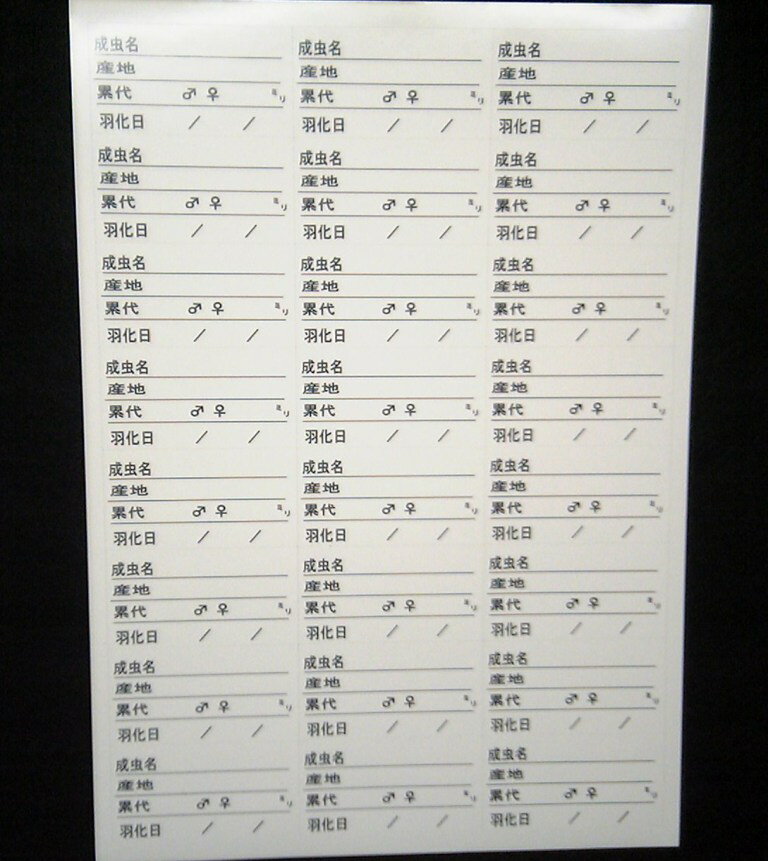 成虫名 成虫名 成虫名
産地 産地 産地
累代 ♂ ♀ ミリ 累代 ♂ ♀ ミリ 累代 ♂ ♀ ミリ
羽化日 / / 羽化日 / / 羽化日 / /
成虫名 成虫名 成虫名
産地 産地 産地
累代 ♂ ♀ ミリ 累代 ♂ ♀ ミリ 累代 ♂ ♀ ミリ
羽化日 / / 羽化日 / / 羽化日 / /
成虫名 成虫名 成虫名
産地 産地 産地
累代 ♂ ♀ ミリ 累代 ♂ ♀ ミリ 累代 ♂ ♀ ミリ
羽化日 / / 羽化日 / / 羽化日 / /
成虫名 成虫名 成虫名
産地 産地 産地
累代 ♂ ♀ ミリ 累代 ♂ ♀ ミリ 累代 ♂ ♀ ミリ
羽化日 / / 羽化日 / / 羽化日 / /
成虫名 成虫名 成虫名
産地 産地 産地
累代 ♂ ♀ ミリ 累代 ♂ ♀ ミリ 累代 ♂ ♀ ミリ
羽化日 / / 羽化日 / / 羽化日 / /
成虫名 成虫名 成虫名
産地 産地 産地
累代 ♂ ♀ ミリ 累代 ♂ ♀ ミリ 累代 ♂ ♀ ミリ
羽化日 / / 羽化日 / / 羽化日 / /
成虫名 成虫名 成虫名
産地 産地 産地
累代 ♂ ♀ ミリ 累代 ♂ ♀ ミリ 累代 ♂ ♀ ミリ
羽化日 / / 羽化日 / / 羽化日 / /
成虫名 成虫名 成虫名
産地 産地 産地
累代 ♂ ♀ ミリ 累代 ♂ ♀ ミリ 累代 ♂ ♀ ミリ
羽化日 / / 羽化日 / / 羽化日 / /